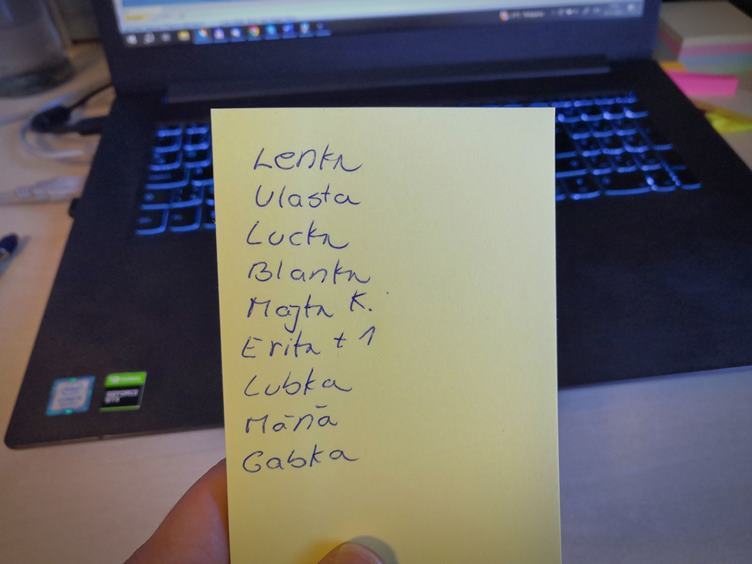 Lenka
Vlasta
Lucka
Blanka
Majka K.
Erika + 1
Lubka
Máňa
Gabka